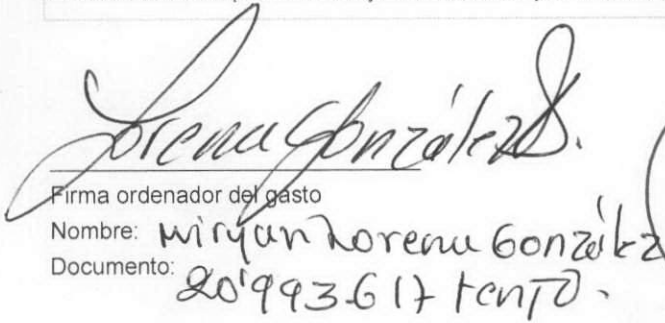 Lorena González S.
Firma ordenador del gasto
Nombre: Miryan Lorena González
Documento: 20'993.617 tenjo.